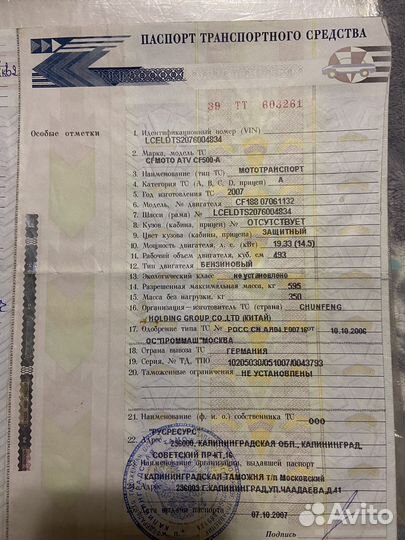 ПАСПОРТ ТРАНСПОРТНОГО СРЕДСТВА
39 ТТ 603261
Особые отметки
1. Идентификационный номер (VIN)
LCELDTS2076004834
2. Марка, модель ТС
CFMOTO ATV CF500-A
3. Наименование (тип ТС) МОТОТРАНСПОРТ
4. Категория ТС (А, В, С, D, прицеп) А
5. Год изготовления ТС 2007
6. Модель, № двигателя CF188 07061132
7. Шасси (рама) № LCELDTS2076004834
8. Кузов (кабина, прицеп) № ОТСУТСТВУЕТ
9. Цвет кузова (кабины, прицепа) ЗАЩИТНЫЙ
10. Мощность двигателя, л. с. (кВт) 19.33 (14.5)
11. Рабочий объем двигателя, куб. см 493
12. Тип двигателя БЕНЗИНОВЫЙ
13. Экологический класс не установлено
14. Разрешенная максимальная масса, кг 595
15. Масса без нагрузки, кг 350
16. Организация-изготовитель ТС (страна) CHUNFENG
HOLDING GROUP CO.,LTD (КИТАЙ)
17. Одобрение типа ТС № РОСС CN.АЯ04.Е00716 от 10.10.2006
ОС"ПРОММАШ"МОСКВА
18. Страна вывоза ТС ГЕРМАНИЯ
19. Серия, № ТД, ТПО 10205030/051007/0043793
20. Таможенные ограничения НЕ УСТАНОВЛЕНЫ
21. Наименование (ф. и. о.) собственника ТС ООО
РУСРЕСУРС
22. Адрес 236000, КАЛИНИНГРАДСКАЯ ОБЛ., КАЛИНИНГРАД,
СОВЕТСКИЙ ПР-КТ,16
23. Наименование организации, выдавшей паспорт
КАЛИНИНГРАДСКАЯ ТАМОЖНЯ Т/П Московский
24. Адрес 236003 Г.КАЛИНИНГРАД,УЛ.ЧААДАЕВА,Д.41
Дата выдачи паспорта 07.10.2007
Подпись
Avito